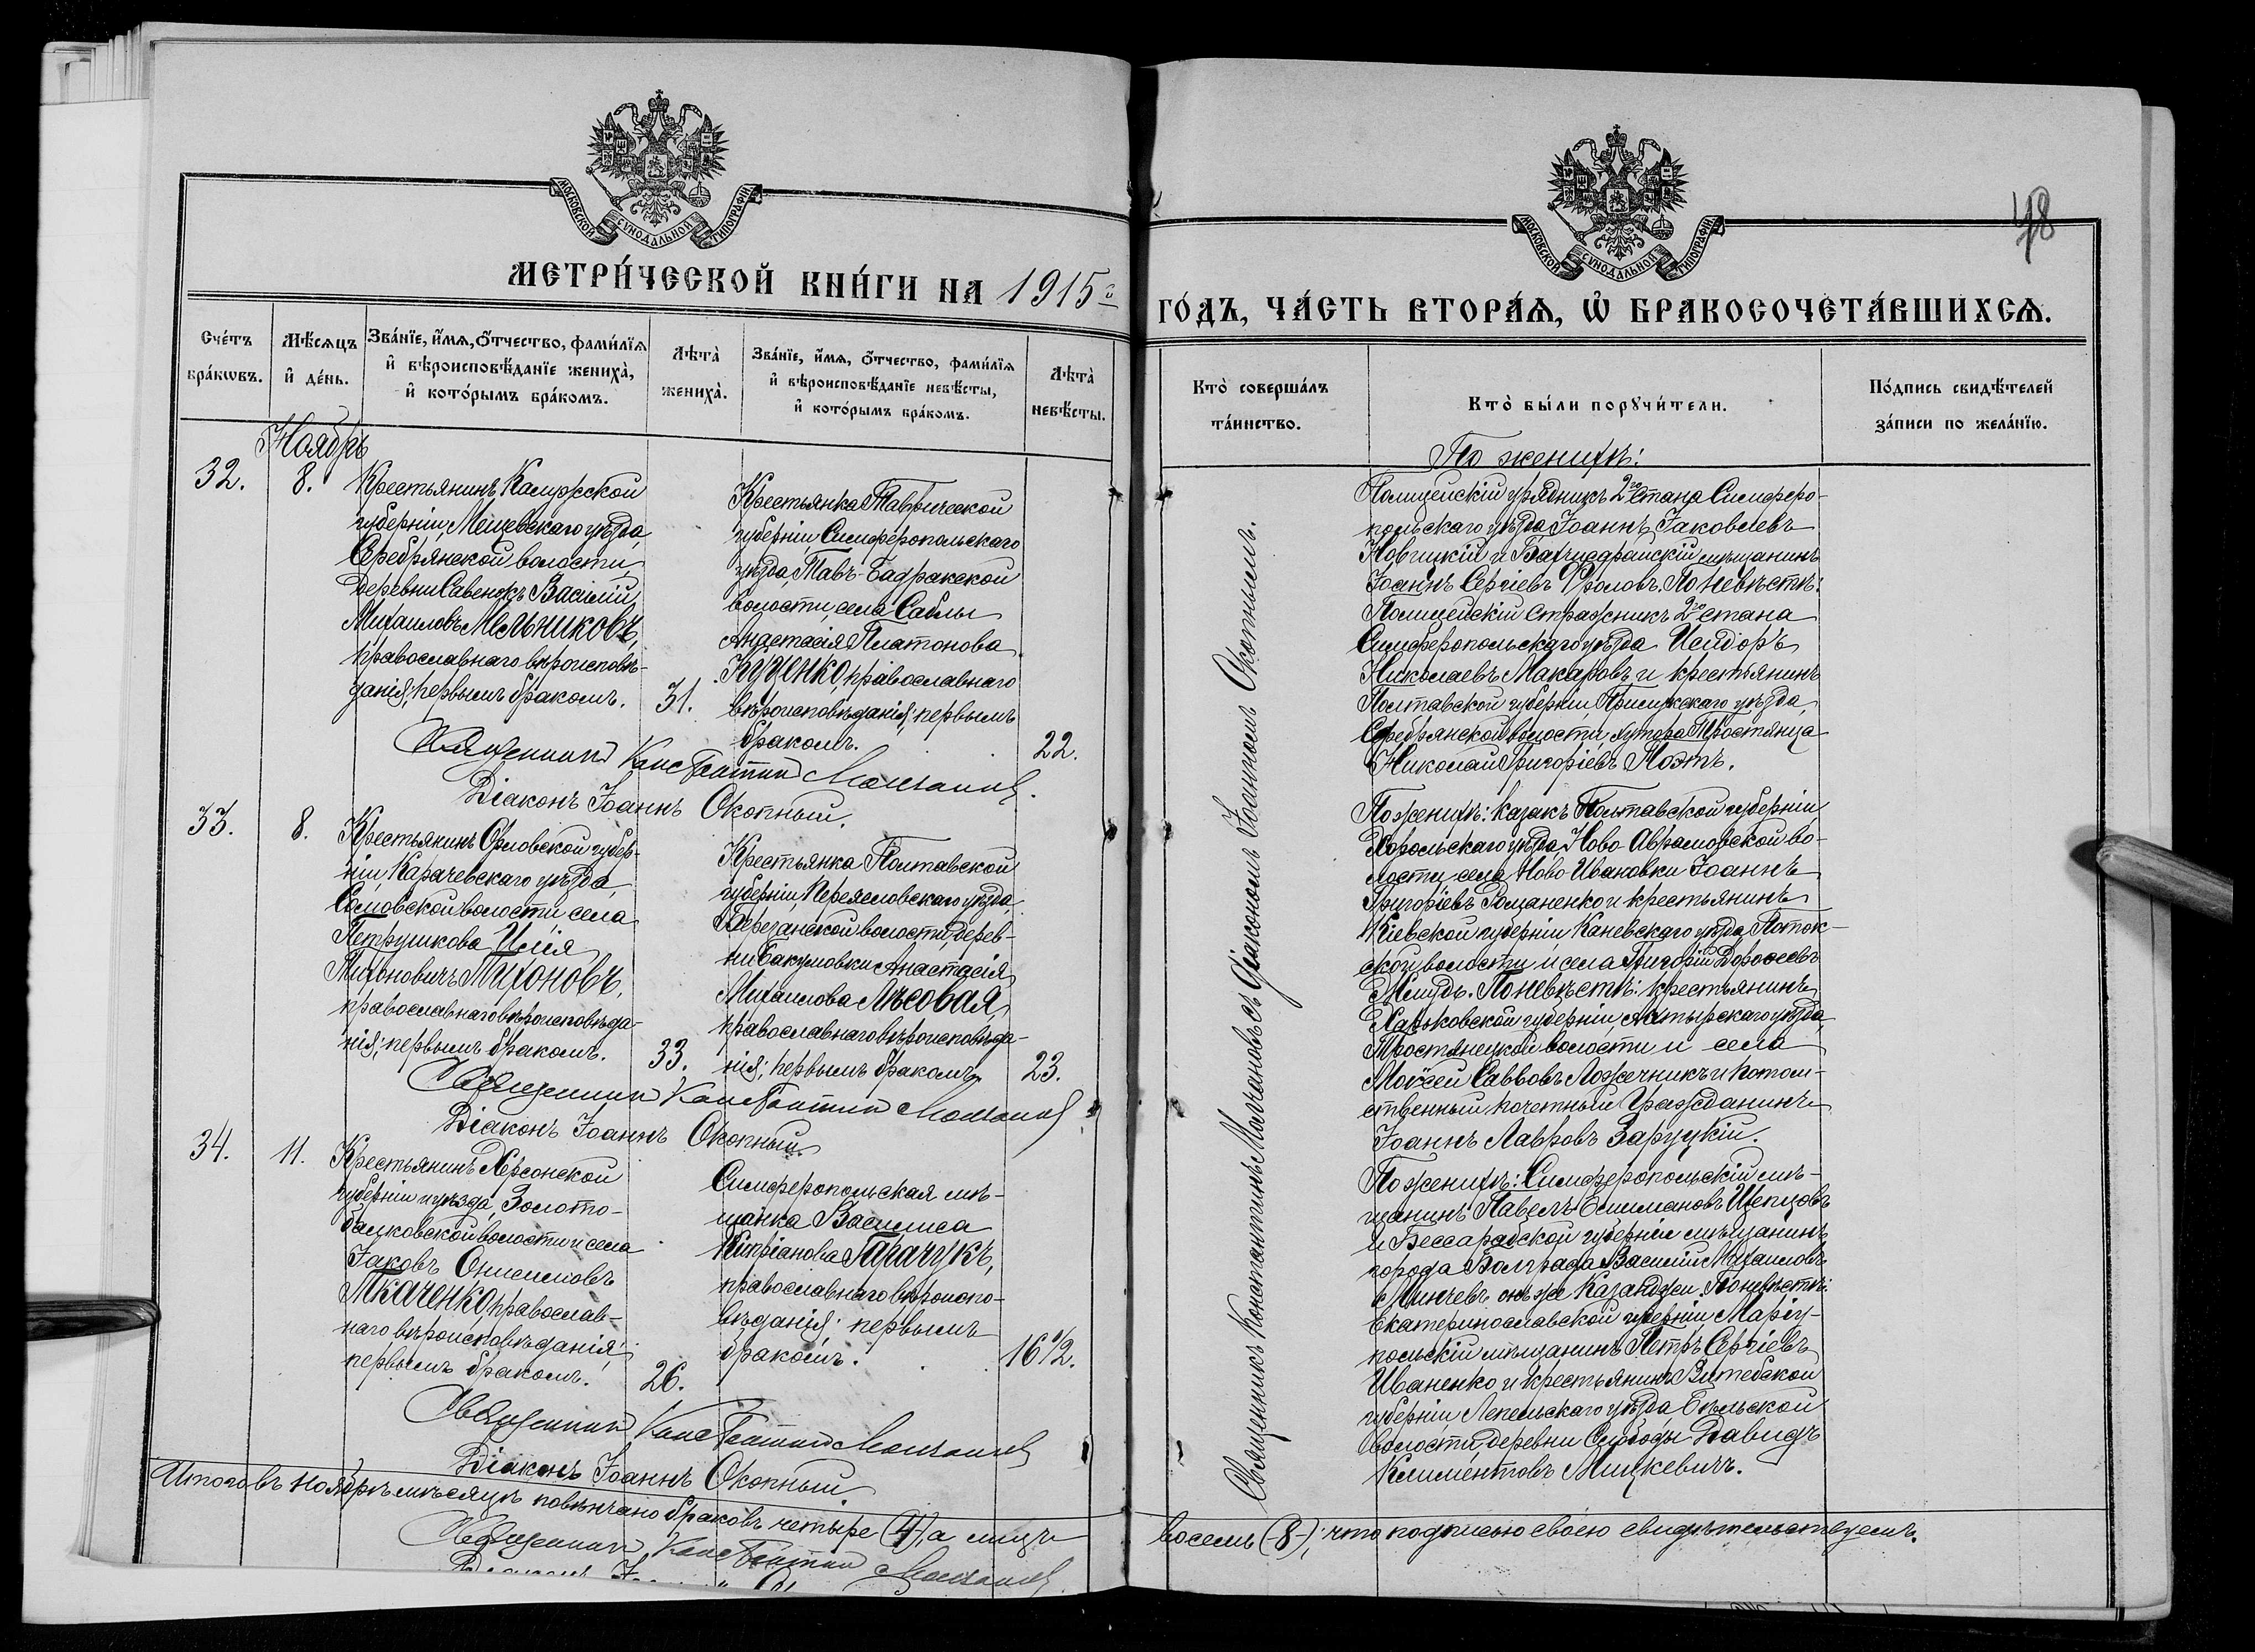 МОСКОВСКОЙ СѴНОДАЛЬНОЙ ТИПОГРАФІИ
МЕТРИ́ЧЕСКОЙ КНИ́ГИ НА 1915й
Сче́тъ бра́кωвъ.
Мѣ́сяцъ и҆ де́нь.
Зва́нїе, и҆́мѧ, о҆́тчество, фами́лїѧ и҆ вѣроисповѣ́данїе жениха̀, и҆ кото́рымъ бра́комъ.
Лѣта̀ жениха̀.
Зва́нїе, и҆́мѧ, о҆́тчество, фами́лїѧ и҆ вѣроисповѣ́данїе невѣ́сты, и҆ кото́рымъ бра́комъ.
Лѣта̀ невѣ́сты.
Ноябрь
32.
8.
Крестьянинъ Калужской
губерніи, Мещевскаго уѣзда,
Серебрянской волости,
деревни Савенокъ Василій
Михаиловъ Мельниковъ,
православнаго вѣроисповѣ-
данія; первымъ бракомъ.
31.
Крестьянка Таврической
губерніи Симферопольскаго
уѣзда, Тавъ-Бадракской
волости, села Саблы
Анастасія Платонова
Куценко, православнаго
вѣроисповѣданія; первымъ
бракомъ.
22.
Священникъ Константинъ Молчановъ.
Діаконъ Іоаннъ Окопный.
33.
8.
Крестьянинъ Орловской губер-
ніи, Карачевскаго уѣзда,
Сомовской волости села
Петрушкова Илія
Тихоновичъ Тихоновъ,
православнаго вѣроисповѣда-
нія; первымъ бракомъ.
33.
Крестьянка Полтавской
губерніи, Переясловскаго уѣзда,
Березанской волости, дерев-
ни Бакумовки Анастасія
Михаилова Лѣсовая,
православнаго вѣроисповѣда-
нія; первымъ бракомъ.
23.
Священникъ Константинъ Молчановъ
Діаконъ Іоаннъ Окопный.
34.
11.
Крестьянинъ Херсонской
губерніи и уѣзда, Золото-
балковской волости и села
Іаковъ Онисимовъ
Ткаченко, православ-
наго вѣроисповѣданія;
первымъ бракомъ.
26.
Симферопольская мѣ-
щанка Василиса
Кипріанова Гарачукъ,
православнаго вѣроиспо-
вѣданія; первымъ
бракомъ.
16 1/2.
Священникъ Константинъ Молчановъ
Діаконъ Іоаннъ Окопный.
Итого въ ноябрѣ мѣсяцѣ повѣнчано браковъ четыре (4), а лицъ
Священникъ Константинъ Молчановъ
МОСКОВСКОЙ СѴНОДАЛЬНОЙ ТИПОГРАФІИ
48
ГО́ДЪ, ЧА́СТЬ ВТОРА́Ѧ, Ѡ҆ БРАКОСОЧЕТА́ВШИХСѦ.
Кто̀ соверша́лъ та́инство.
Кто̀ бы́ли порꙋчи́тели.
По́дпись свидѣ́телей за́писи по жела́нїю.
Священникъ Константинъ Молчановъ съ діакономъ Іоанномъ Окопнымъ.
По женихѣ:
Полицейскій урядникъ 2го стана Симферо-
польскаго уѣзда Іоаннъ Іаковлевъ
Новицкій и Бахчисарайскій мѣщанинъ
Іоаннъ Сергіевъ Фроловъ. По невѣстѣ:
Полицейскій стражникъ 2го стана
Симферопольскаго уѣзда Исидоръ
Николаевъ Макаровъ и крестьянинъ
Полтавской губерніи Прилукскаго уѣзда,
Серебрянской волости хутора Тростянца
Николай Григоріевъ Поэтъ.
По женихѣ: казакъ Полтавской губерніи
Хорольскаго уѣзда, Ново-Аврамовской во-
лости, села Ново-Ивановки Іоаннъ
Григоріевъ Романенко и крестьянинъ
Кіевской губерніи Каневскаго уѣзда, Поток-
ской волости и села Григорій Дорофеевъ
По невѣстѣ: крестьянинъ
Харьковской губерніи, Ахтырскаго уѣзда,
Тростянецкой волости и села
Моисей Саввовъ Ложечникъ и потом-
ственный почетный Гражданинъ
Іоаннъ Лавровъ Заруцкій.
По женихѣ: Симферопольскій мѣ-
щанинъ Павелъ Емиліановъ Шепцовъ
и Бессарабской губерніи мѣщанинъ
города Болграда Василій Михаиловъ
Минчевъ онъ же Казанджи. По невѣстѣ:
Екатеринославской губерніи Маріу-
польскій мѣщанинъ Петръ Сергіевъ
Иваненко и крестьянинъ Витебской
губерніи, Лепельскаго уѣзда, Бѣльской
волости, деревни Слободы Давидъ
Климентовъ Мицкевичъ.
восемь (8); что подписью своею свидѣтельствуемъ.